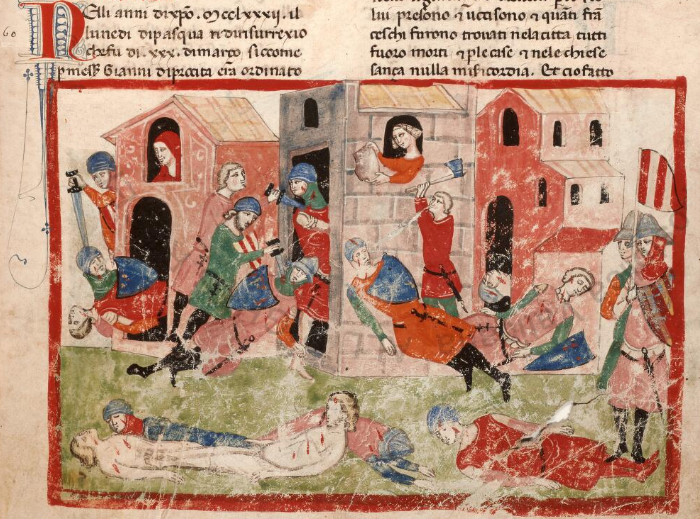 60
Nelli anni dixp̄o. MCCLXXXII. il
lunedi dipasqua ꝛ diresurrexio
che fu di .xxx. dimarço siccome
p̄messꝰ Gianni diprocita era ordinato
liu presono ꝛ uccisono ꝛ quāti frā
ceschi furono trouati nela citta tutti
fuoro morti ꝛ ple case ꝛ nele chiese
sança nulla misicordia. Et cio fatto